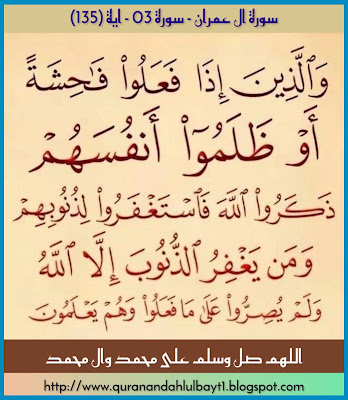 سورة ال عمران - سورة 03 - اية (135)
وَٱلَّذِينَ إِذَا فَعَلُوا۟ فَٰحِشَةً
أَوْ ظَلَمُوٓا۟ أَنفُسَهُمْ
ذَكَرُوا۟ ٱللَّهَ فَٱسْتَغْفَرُوا۟ لِذُنُوبِهِمْ
وَمَن يَغْفِرُ ٱلذُّنُوبَ إِلَّا ٱللَّهُ
وَلَمْ يُصِرُّوا۟ عَلَىٰ مَا فَعَلُوا۟ وَهُمْ يَعْلَمُونَ
اللهم صل وسلم على محمد وال محمد
http://www.quranandahlulbayt1.blogspot.com